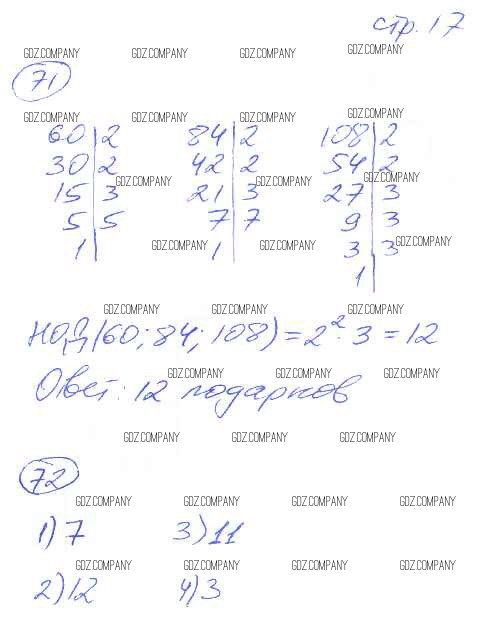 стр. 17
GDZ.COMPANY GDZ.COMPANY GDZ.COMPANY GDZ.COMPANY
71
GDZ.COMPANY GDZ.COMPANY GDZ.COMPANY GDZ.COMPANY
60|2 84|2 108|2
30|2 42|2 54|2
GDZ.COMPANY GDZ.COMPANY GDZ.COMPANY
15|3 21|3 27|3
5|5 7|7 9|3
GDZ.COMPANY GDZ.COMPANY GDZ.COMPANY
1| 1| 3|3
1|
GDZ.COMPANY GDZ.COMPANY GDZ.COMPANY
НОД(60; 84; 108) = 2² · 3 = 12
GDZ.COMPANY GDZ.COMPANY GDZ.COMPANY
Ответ: 12 подарков
GDZ.COMPANY GDZ.COMPANY GDZ.COMPANY
72
GDZ.COMPANY GDZ.COMPANY GDZ.COMPANY GDZ.COMPANY
1) 7 3) 11
GDZ.COMPANY GDZ.COMPANY GDZ.COMPANY GDZ.COMPANY
2) 12 4) 3